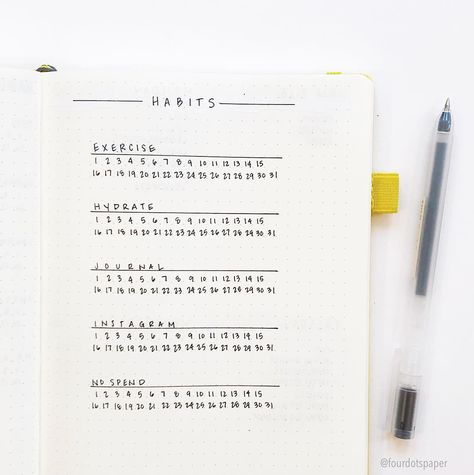 HABITS
EXERCISE
1 2 3 4 5 6 7 8 9 10 11 12 13 14 15
16 17 18 19 20 21 22 23 24 25 26 27 28 29 30 31
HYDRATE
1 2 3 4 5 6 7 8 9 10 11 12 13 14 15
16 17 18 19 20 21 22 23 24 25 26 27 28 29 30 31
JOURNAL
1 2 3 4 5 6 7 8 9 10 11 12 13 14 15
16 17 18 19 20 21 22 23 24 25 26 27 28 29 30 31
INSTAGRAM
1 2 3 4 5 6 7 8 9 10 11 12 13 14 15
16 17 18 19 20 21 22 23 24 25 26 27 28 29 30 31
NO SPEND
1 2 3 4 5 6 7 8 9 10 11 12 13 14 15
16 17 18 19 20 21 22 23 24 25 26 27 28 29 30 31
@fourdotspaper